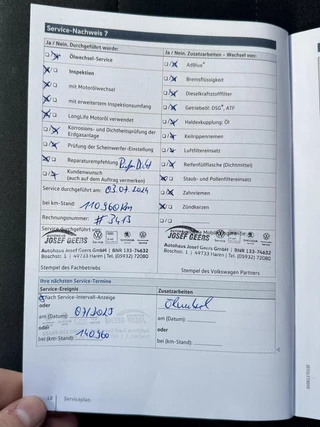 Service-Nachweis 7
Ja / Nein. Durchgeführt wurde:
Ölwechsel-Service
Inspektion
mit Motorölwechsel
mit erweitertem Inspektionsumfang
LongLife Motoröl verwendet
Korrosions- und Dichtheitsprüfung der Erdgasanlage
Prüfung der Scheinwerfer-Einstellung
Reparaturempfehlung
Kundenwunsch
(auch auf dem Auftrag vermerken)
Service durchgeführt am: 03.07.2024
bei km-Stand: 110960 km
Rechnungsnummer: # 3413
Service durchgeführt von:
JOSEF GEENS
Autohaus Josef Geens GmbH | BNR 133-74632
Boschstr. 1 | 49733 Haren | Tel. (05932) 72080
Stempel des Fachbetriebs
Ja / Nein. Zusatzarbeiten – Wechsel von:
AdBlue
Bremsflüssigkeit
Dieselkraftstofffilter
Getriebeöl: DSG, ATF
Haldexkupplung: Öl
Keilrippenriemen
Luftfiltereinsatz
Reifenfüllflasche (Dichtmittel)
Staub- und Pollenfiltereinsatz
Zahnriemen
Zündkerzen
JOSEF GEENS
Autohaus Josef Geens GmbH | BNR 133-74632
Boschstr. 1 | 49733 Haren | Tel. (05932) 72080
Stempel des Volkswagen Partners
Ihre nächsten Service-Termine
Service-Ereignis
nach Service-Intervall-Anzeige
oder
am (Datum):
oder
bei (km-Stand): 140960
Zusatzarbeiten
am (Datum):
oder
bei (km-Stand):
18 Serviceplan